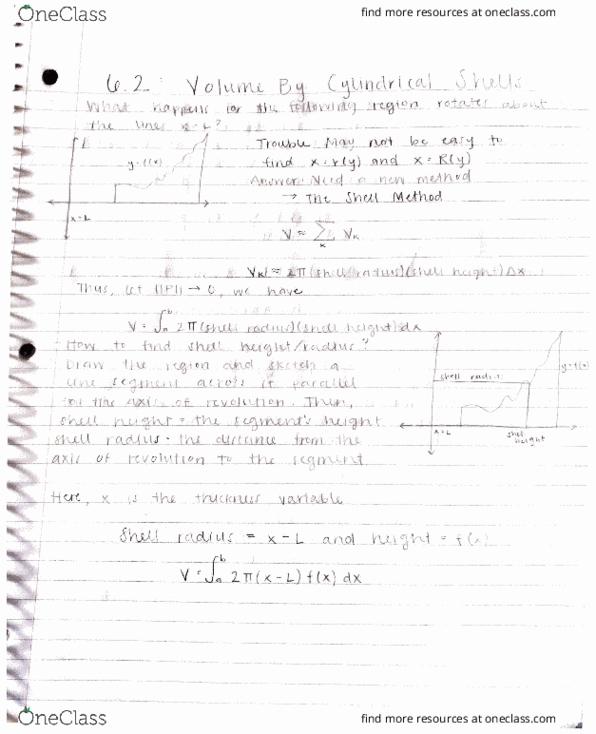 OneClass
find more resources at oneclass.com
6.2: Volume By Cylindrical Shells
What happens for the following region rotates about
the lines x=L?
y=f(x)
x=L
Trouble: May not be easy to
find x=r(y) and x=R(y)
Answer: Need a new method
→ The Shell Method
V ≈ Σ Vₖ
k
Vₖ ≈ 2π(shell radius)(shell height)Δx
Thus, let ||P|| → 0, we have
V = ∫ₐᵇ 2π(shell radius)(shell height)dx
How to find shell height/radius?
Draw the region and sketch a
line segment across it parallel
to the axis of revolution. Then,
shell height = the segment's height
shell radius = the distance from the
axis of revolution to the segment
shell radius
y=f(x)
x=L
shell
height
Here, x is the thickness variable
Shell radius = x-L and height = f(x)
V = ∫ₐᵇ 2π(x-L) f(x) dx
OneClass
find more resources at oneclass.com